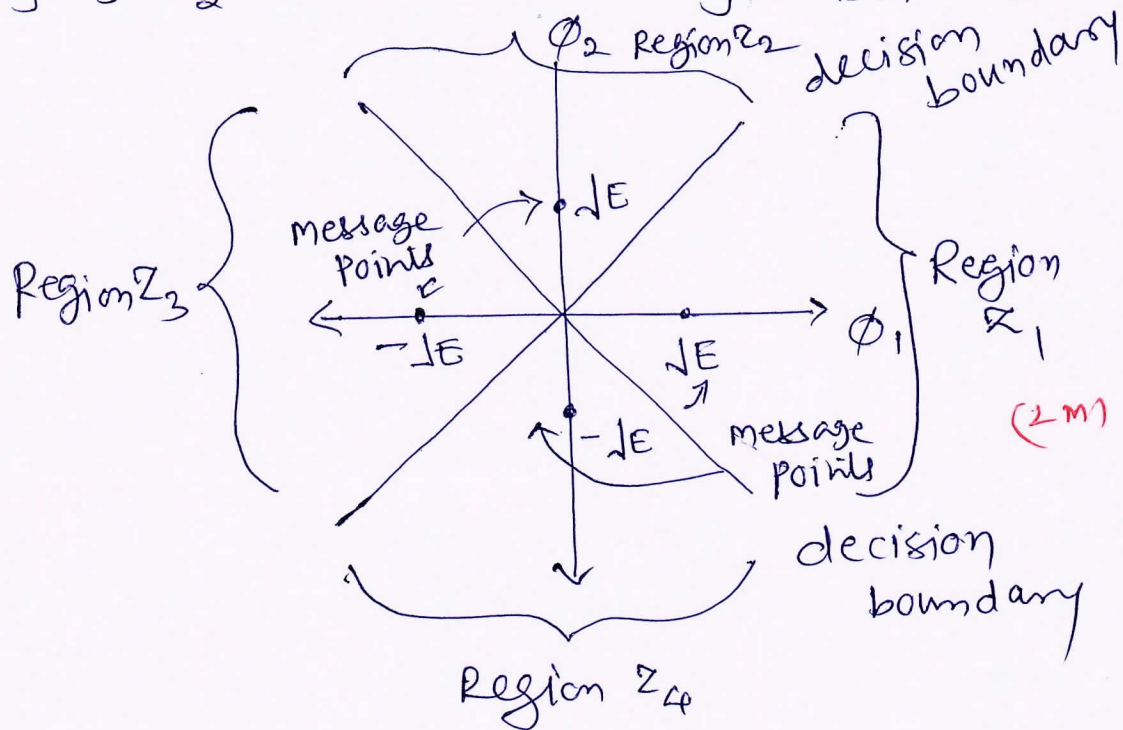 ϕ2 Region Z2
decision
boundary
message
points
√E
Region Z3
-√E
√E
ϕ1
Region
Z1
(2M)
-√E
message
points
decision
boundary
Region Z4